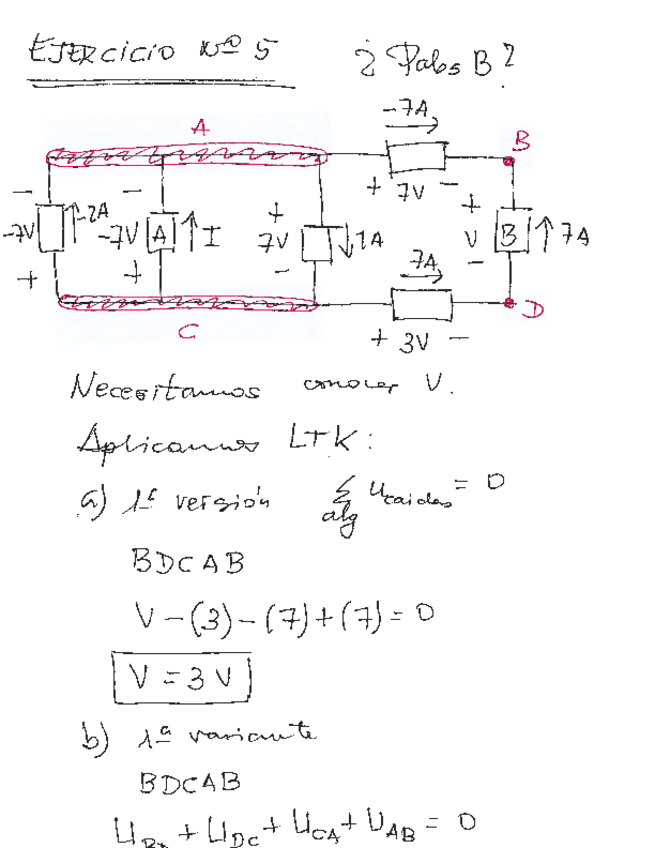 EJERCICIO Nº 5 ¿Pabs B?
A
-7A
B
+ 7V -
- - + +
-7V -2A -7V A I 7V 1A V B 7A
+ + - -
7A
D
C
+ 3V -
Necesitamos conocer V.
Aplicamos LTK:
a) 1ª versión Σ alg Ucaidas = 0
BDCAB
V - (3) - (7) + (7) = 0
V = 3 V
b) 1ª variante
BDCAB
UBD + UDC + UCA + UAB = 0